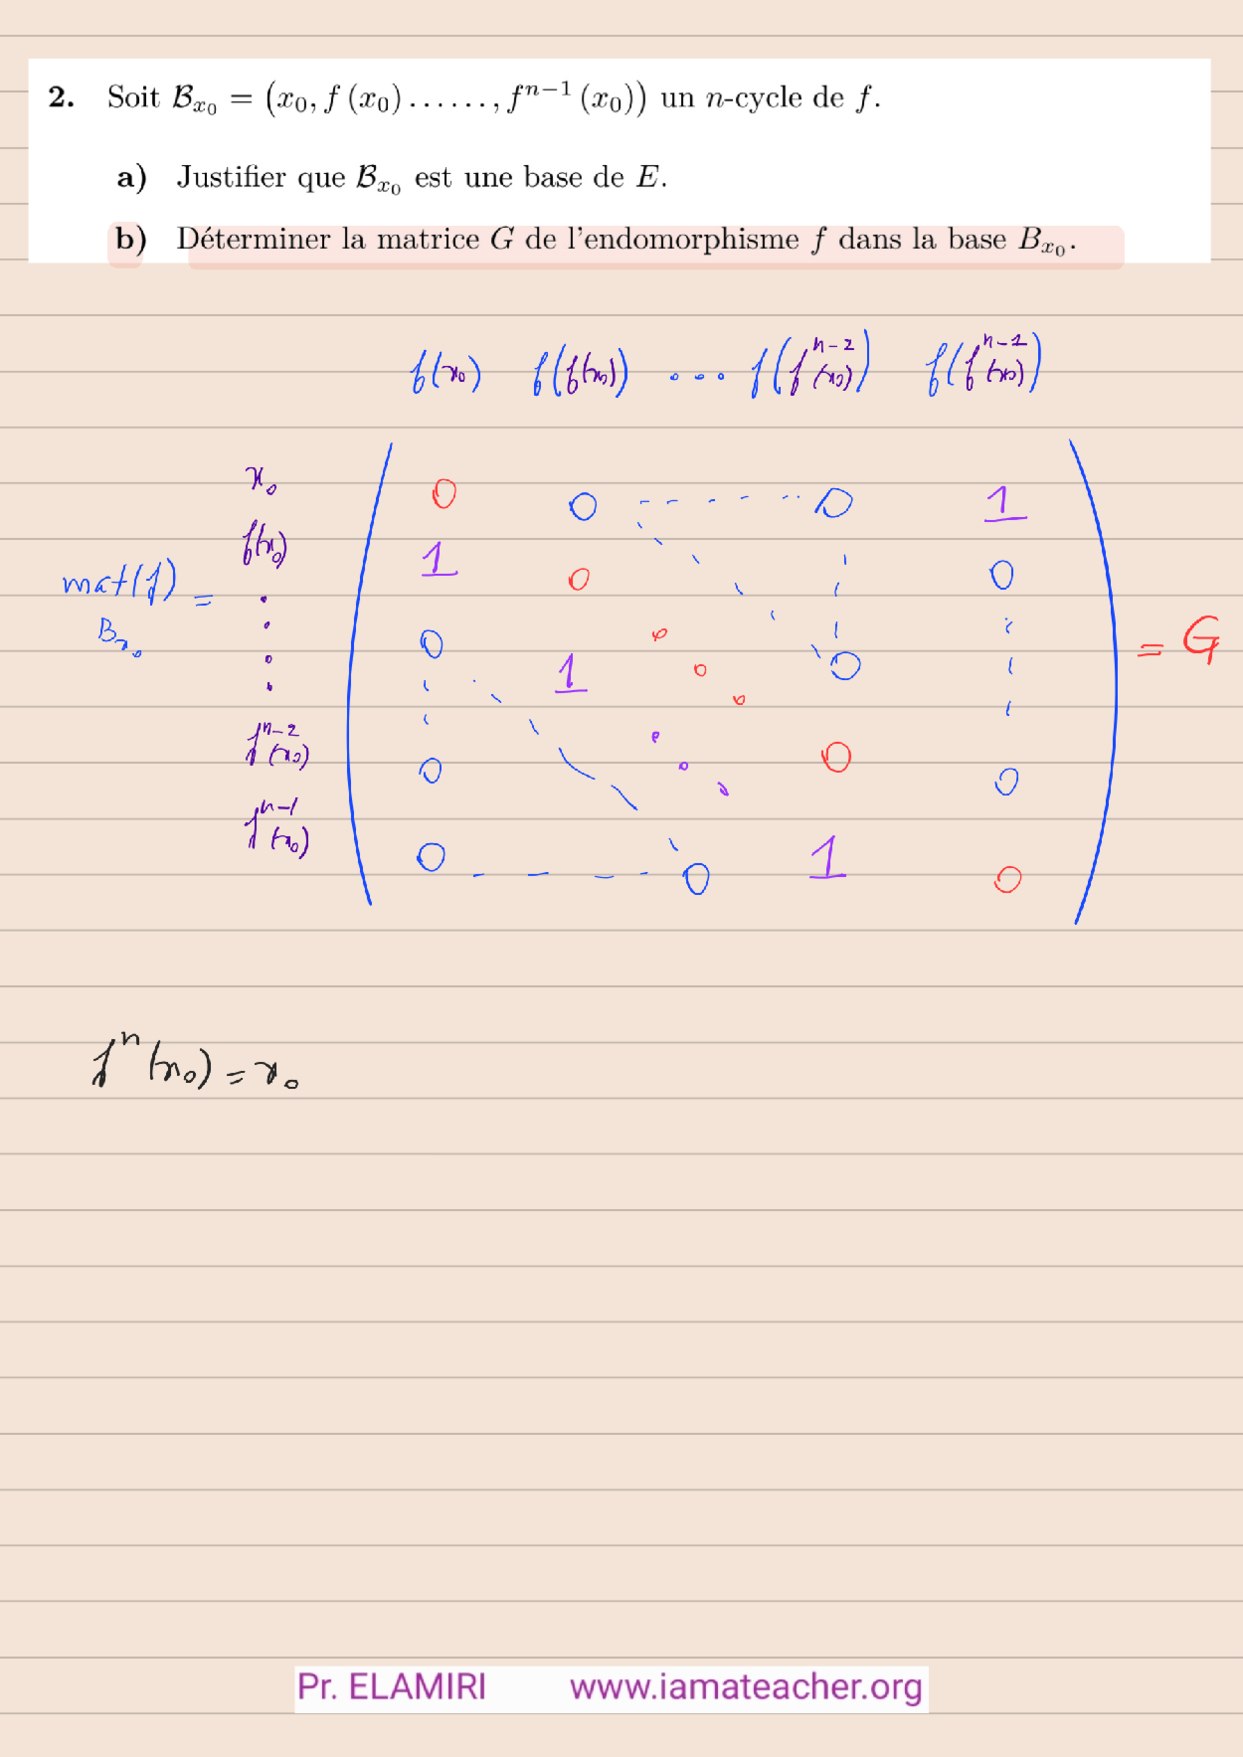 2. Soit 𝓑ₓ₀ = (x₀, f (x₀) ......, fⁿ⁻¹ (x₀)) un n-cycle de f.
a) Justifier que 𝓑ₓ₀ est une base de E.
b) Déterminer la matrice G de l'endomorphisme f dans la base Bₓ₀.
f(x₀) f(f(x₀)) ... f(fⁿ⁻²(x₀)) f(fⁿ⁻¹(x₀))
x₀ 0 0 - - - - 0 1
f(x₀) 1 0 0
mat(f) = = G
Bₓ₀
0 1 0
fⁿ⁻²(x₀) 0 0 0
fⁿ⁻¹(x₀) 0 - - - - 0 1 0
fⁿ(x₀) = x₀
Pr. ELAMIRI www.iamateacher.org